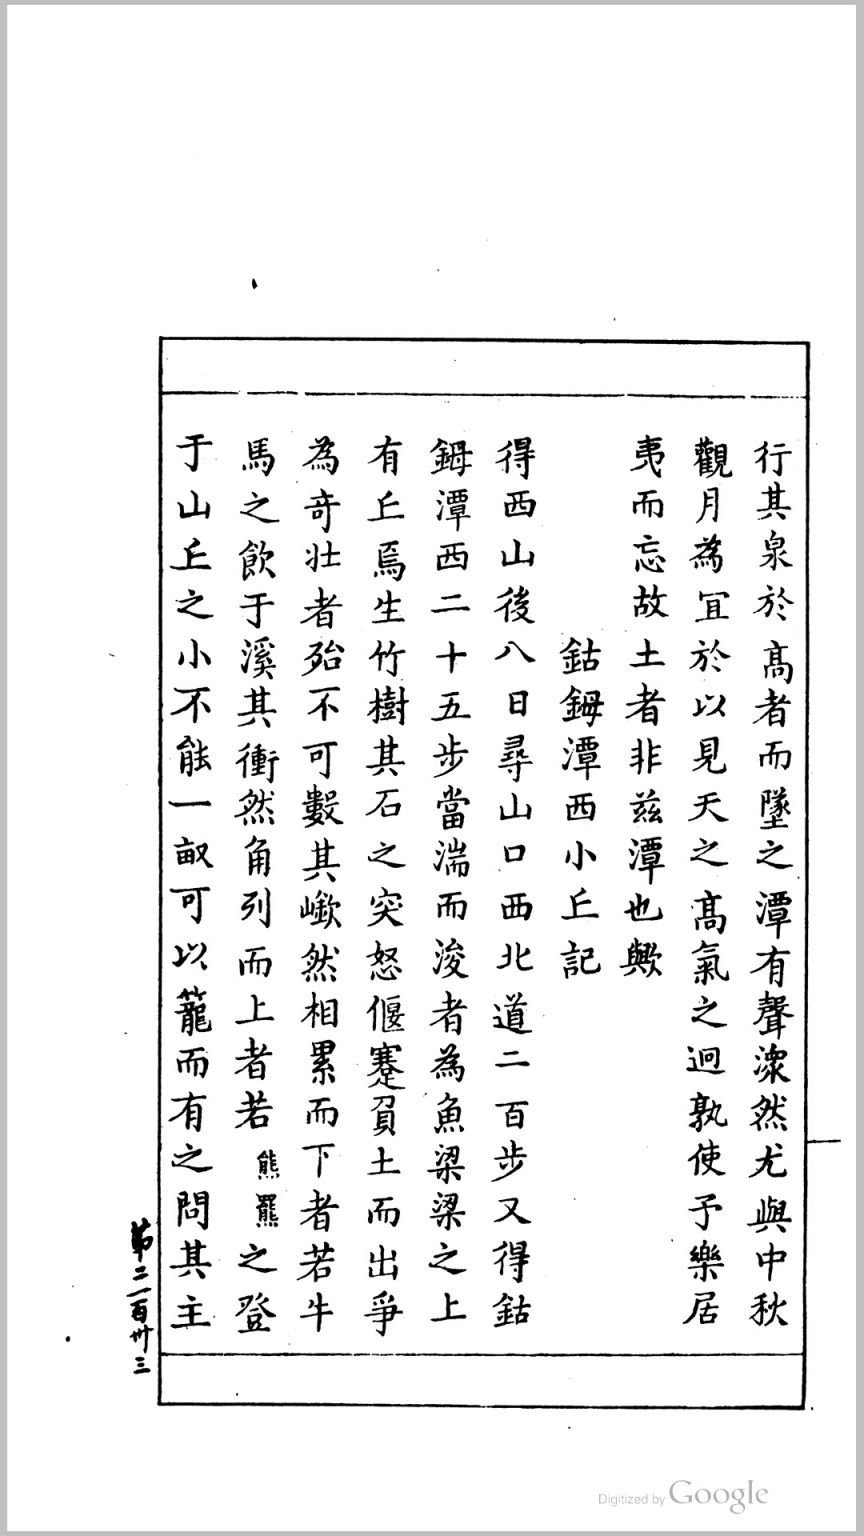 行其泉於高者而墜之潭有聲潨然尤與中秋
觀月為冝於以見天之高氣之迥孰使予樂居
夷而忘故土者非兹潭也歟
鈷鉧潭西小丘記
得西山後八日尋山口西北道二百步又得鈷
鉧潭西二十五步當湍而浚者為魚梁梁之上
有丘焉生竹樹其石之突怒偃蹇負土而出爭
為奇壯者殆不可數其嶔然相累而下者若牛
馬之飲于溪其衝然角列而上者若熊羆之登
于山丘之小不能一畝可以籠而有之問其主
第二百卅三
Digitized by Google